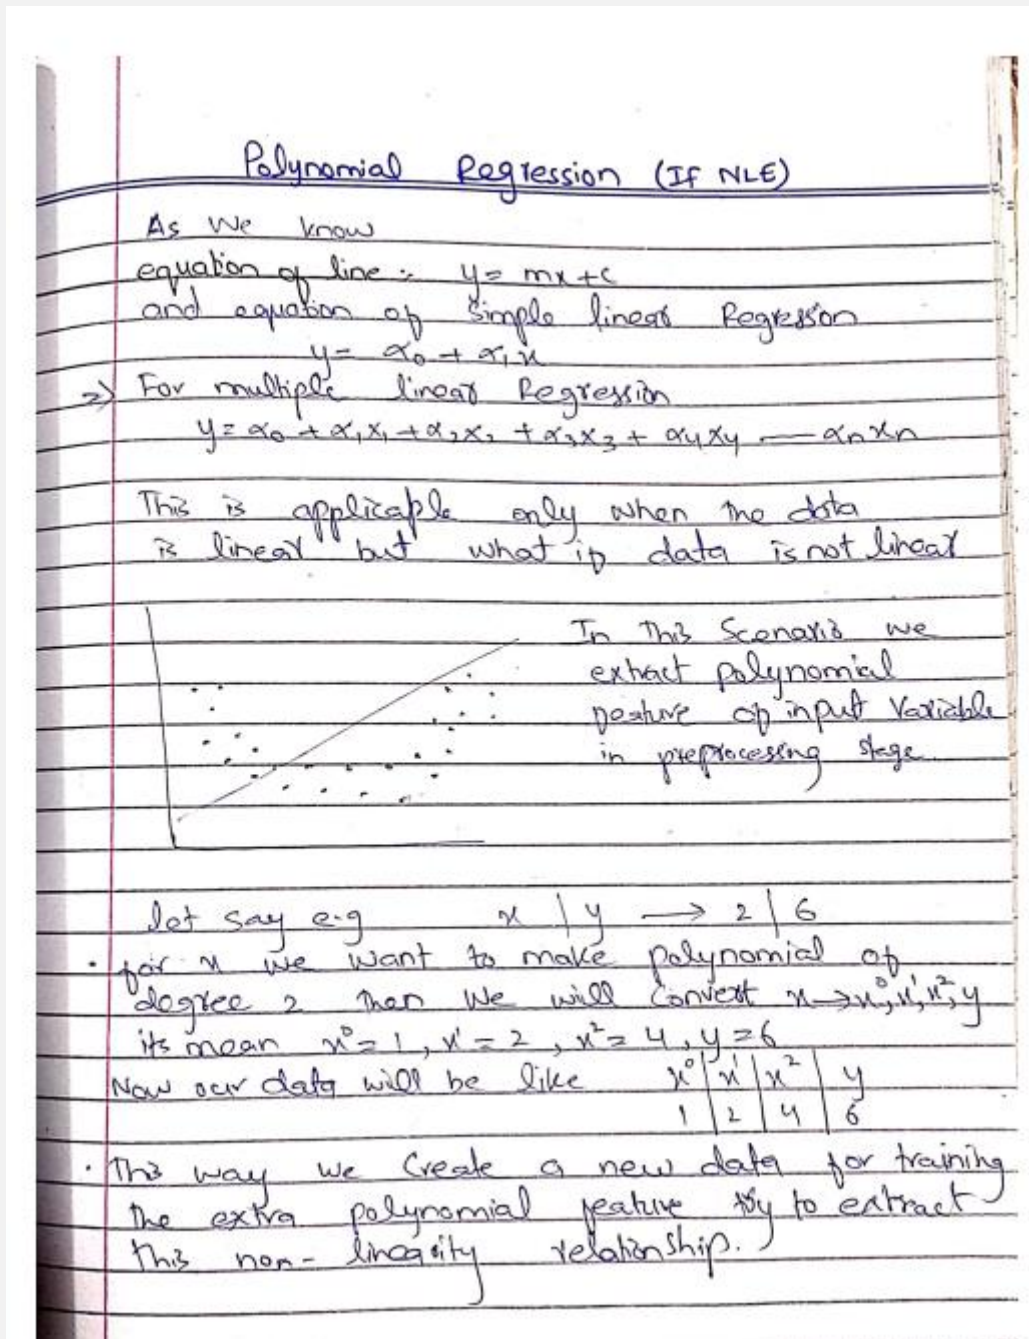 Polynomial Regression (If NLE)
As We know
equation of line :- y = mx + c
and equation of Simple linear Regression
y = α₀ + α₁x
=> For multiple linear Regression
y = α₀ + α₁x₁ + α₂x₂ + α₃x₃ + α₄x₄ — αₙxₙ
This is applicable only when the data
is linear but what if data is not linear
In This Scenario we
extract polynomial
feature of input Variable
in preprocessing stage
let say e.g x | y → 2 | 6
• for x we want to make polynomial of
degree 2 then We will Convert x → x⁰, x¹, x², y
its mean x⁰ = 1, x¹ = 2, x² = 4, y = 6
Now our data will be like x⁰ | x¹ | x² | y
1 | 2 | 4 | 6
• This way we Create a new data for training
the extra polynomial feature try to extract
this non-linearity relationship.